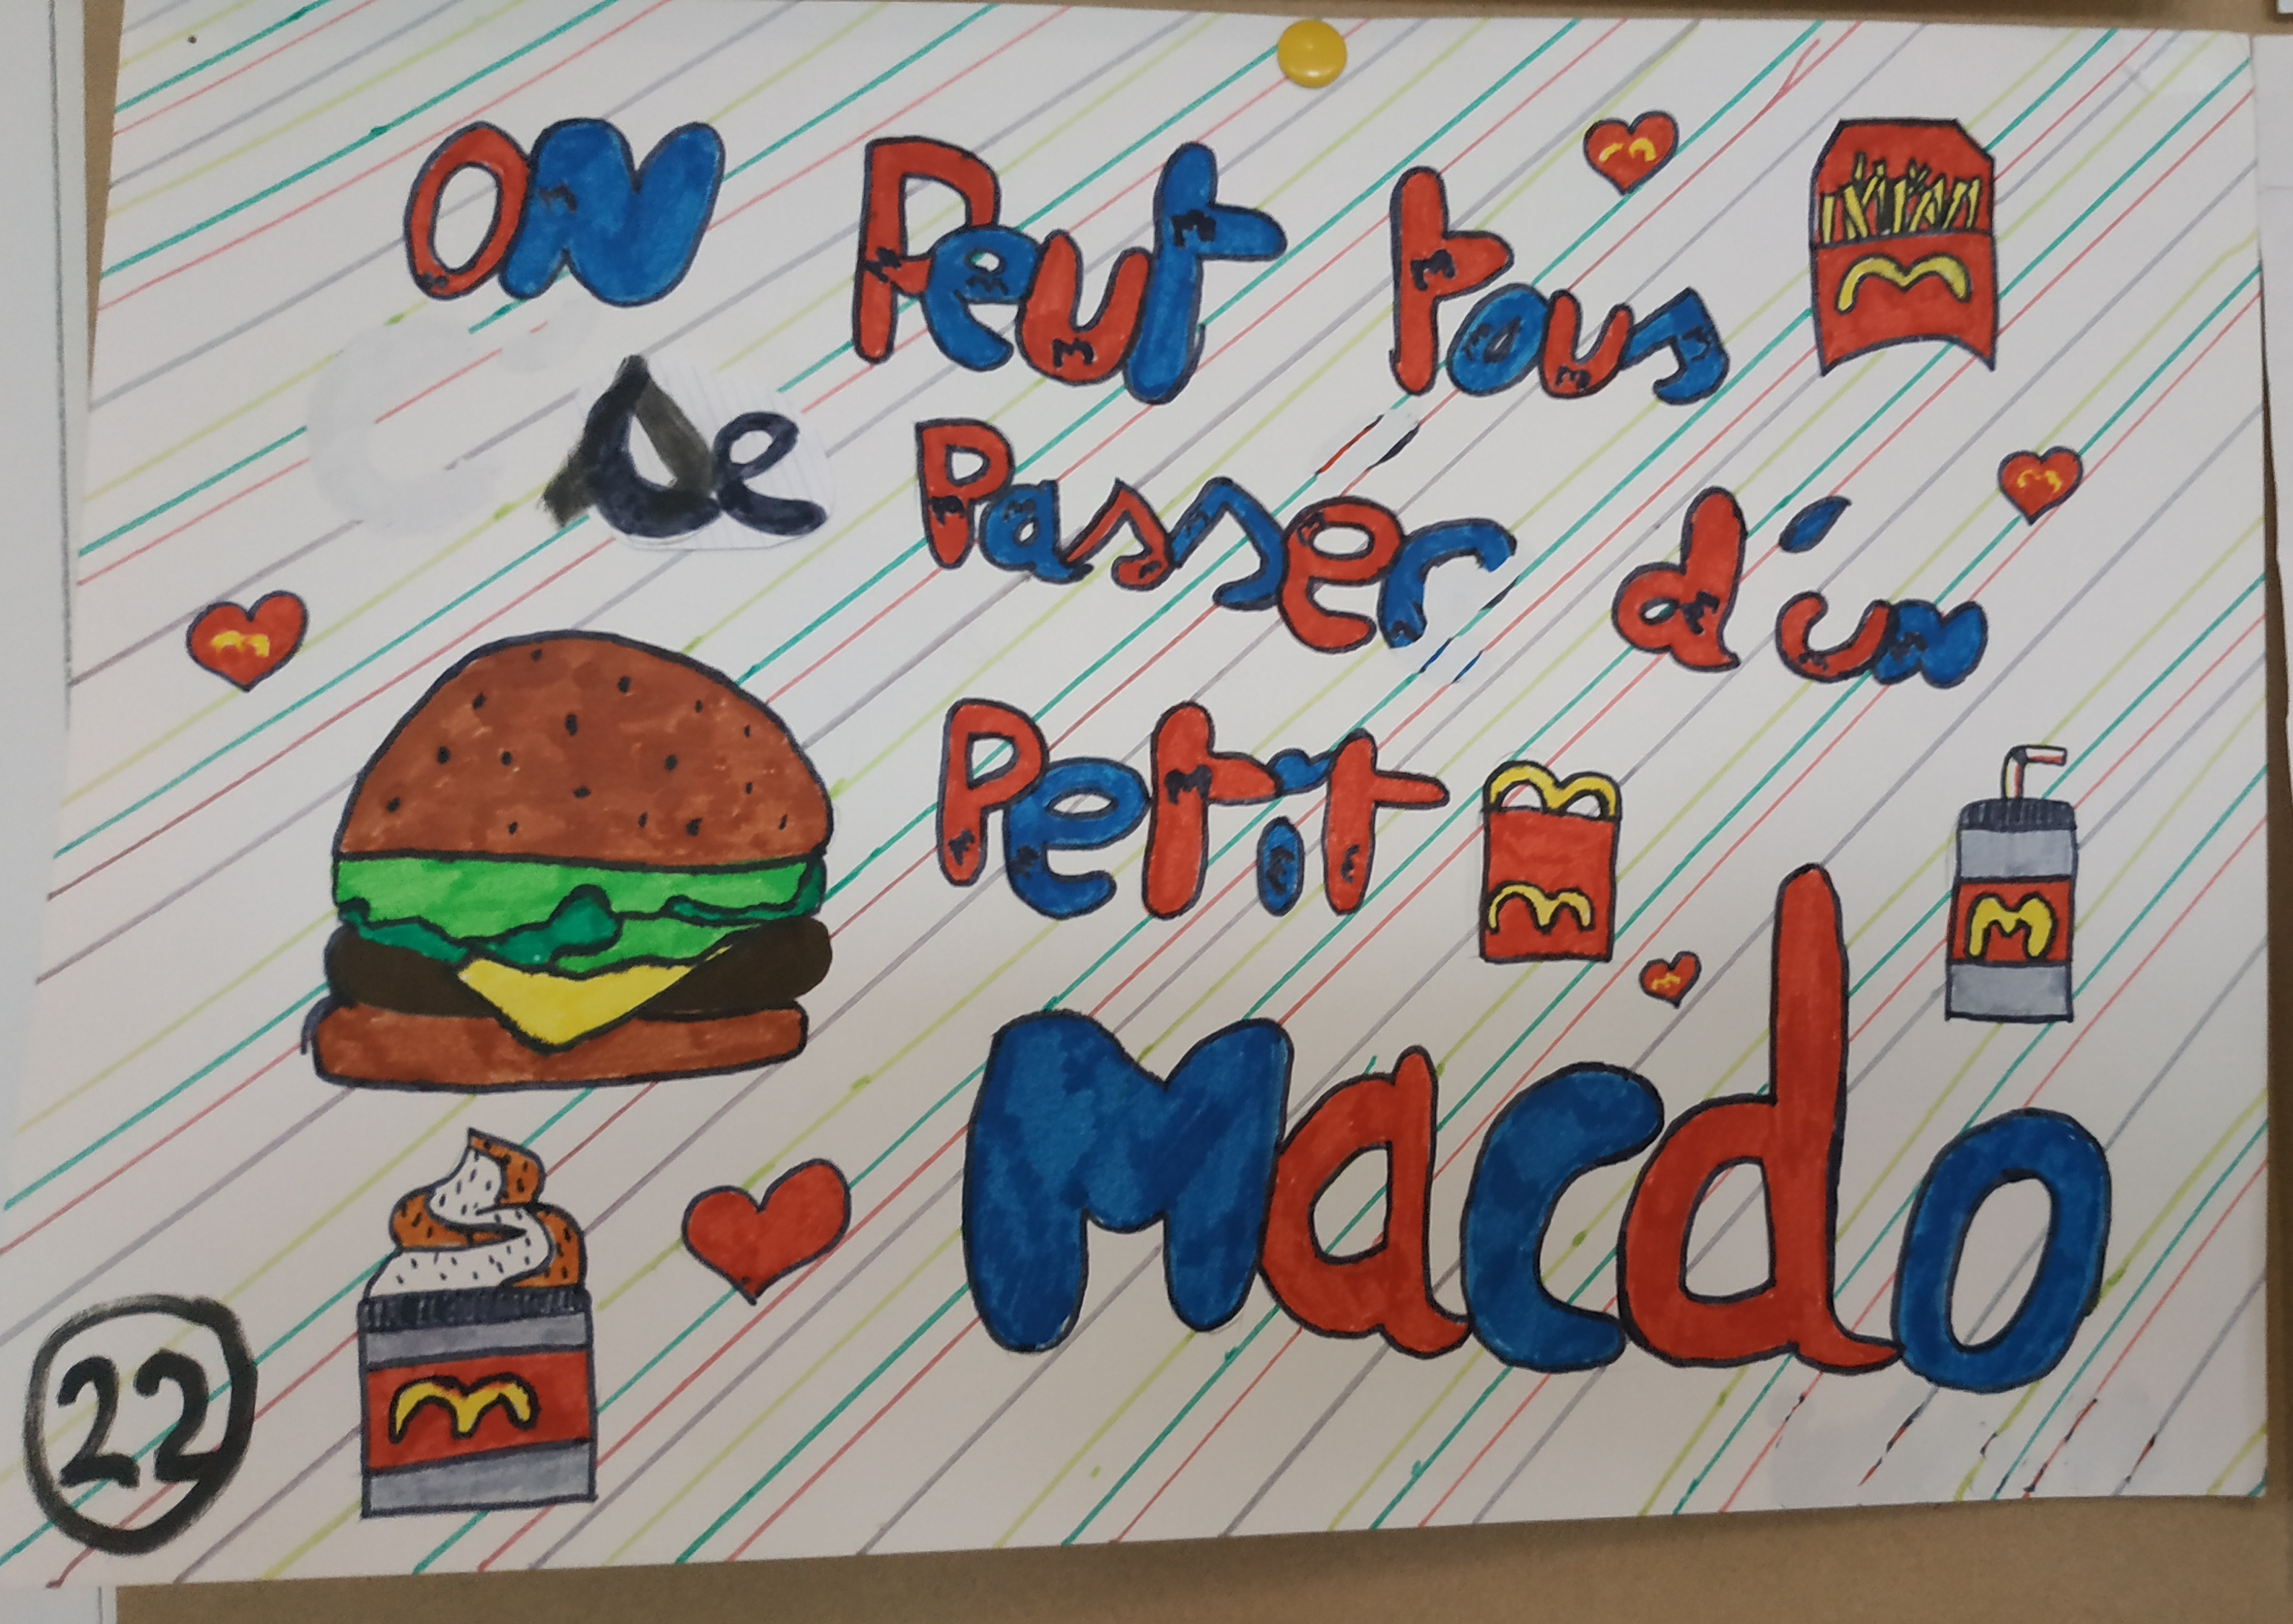 ON Peut tous
se Passer d'un
Petit
Macdo
22